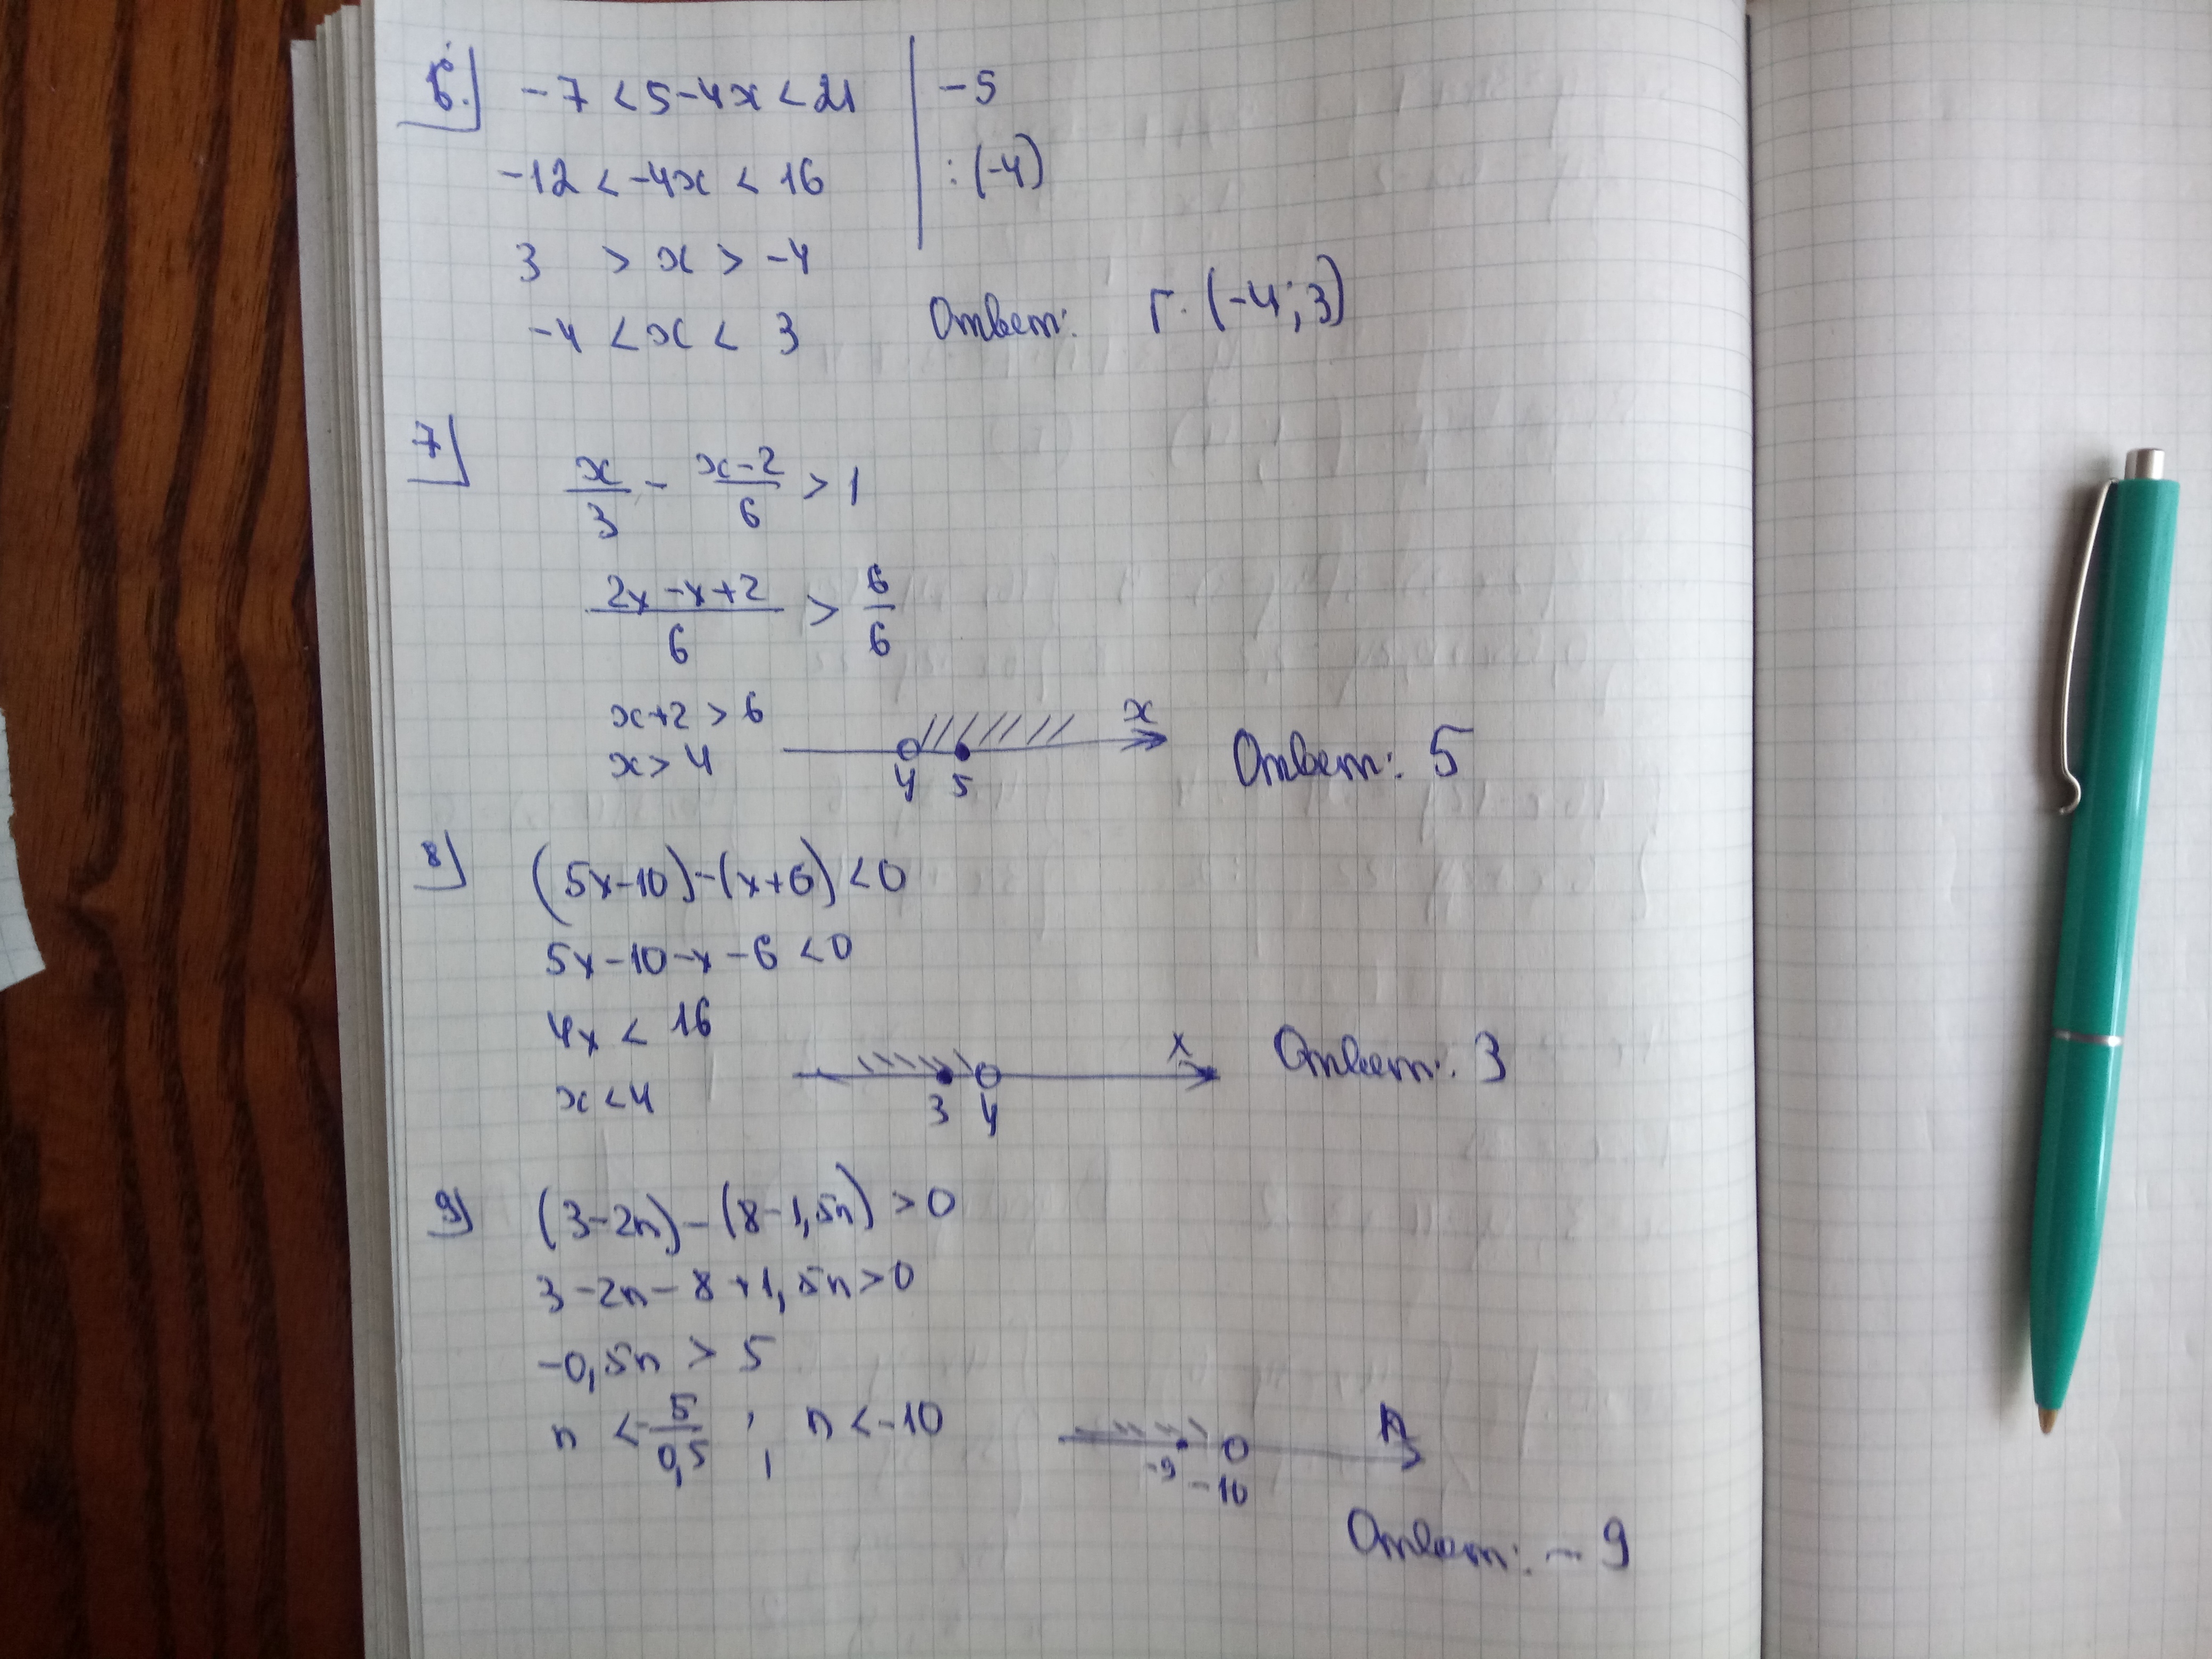 6. -7 < 5-4x < 21 | -5
-12 < -4x < 16 | : (-4)
3 > x > -4
-4 < x < 3 Ответ: Г. (-4; 3)
7 x/3 - (x-2)/6 > 1
(2x-x+2)/6 > 6/6
x+2 > 6
x > 4
x
4 5
Ответ: 5
8 (5x-10)-(x+6) < 0
5x-10-x-6 < 0
4x < 16
x < 4
x
3 4
Ответ: 3
9 (3-2n)-(8-1,5n) > 0
3-2n-8+1,5n > 0
-0,5n > 5
n < -5/0,5 ; n < -10
n
-9 -10
Ответ: -9